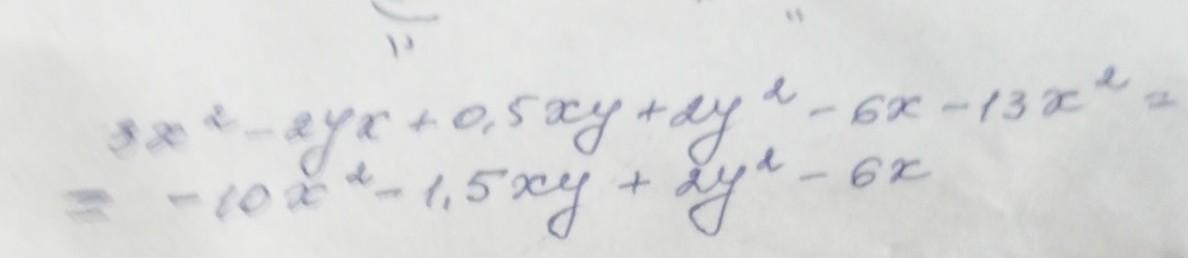 3x² - 2yx + 0,5xy + 2y² - 6x - 13x² =
= -10x² - 1,5xy + 2y² - 6x